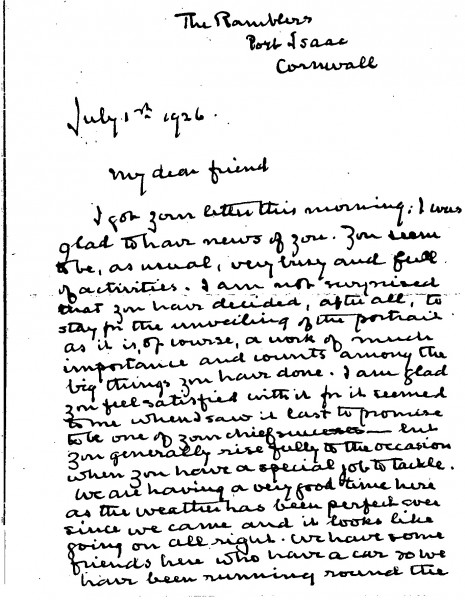 The Ramblers
Port Isaac
Cornwall
July 1st 1926.
My dear friend
I got your letter this morning; I was
glad to have news of you. You seem
to be, as usual, very busy and full
of activities. I am not surprised
that you have decided, after all, to
stay for the unveiling of the portrait
as it is, of course, a work of much
importance and counts among the
big things you have done. I am glad
you feel satisfied with it for it seemed
to me when I saw it last to promise
to be one of your chief successes — but
you generally rise fully to the occasion
when you have a special job to tackle.
We are having a very good time here
as the weather has been perfect ever
since we came and it looks like
going on all right. We have some
friends here who have a car so we
have been running round the